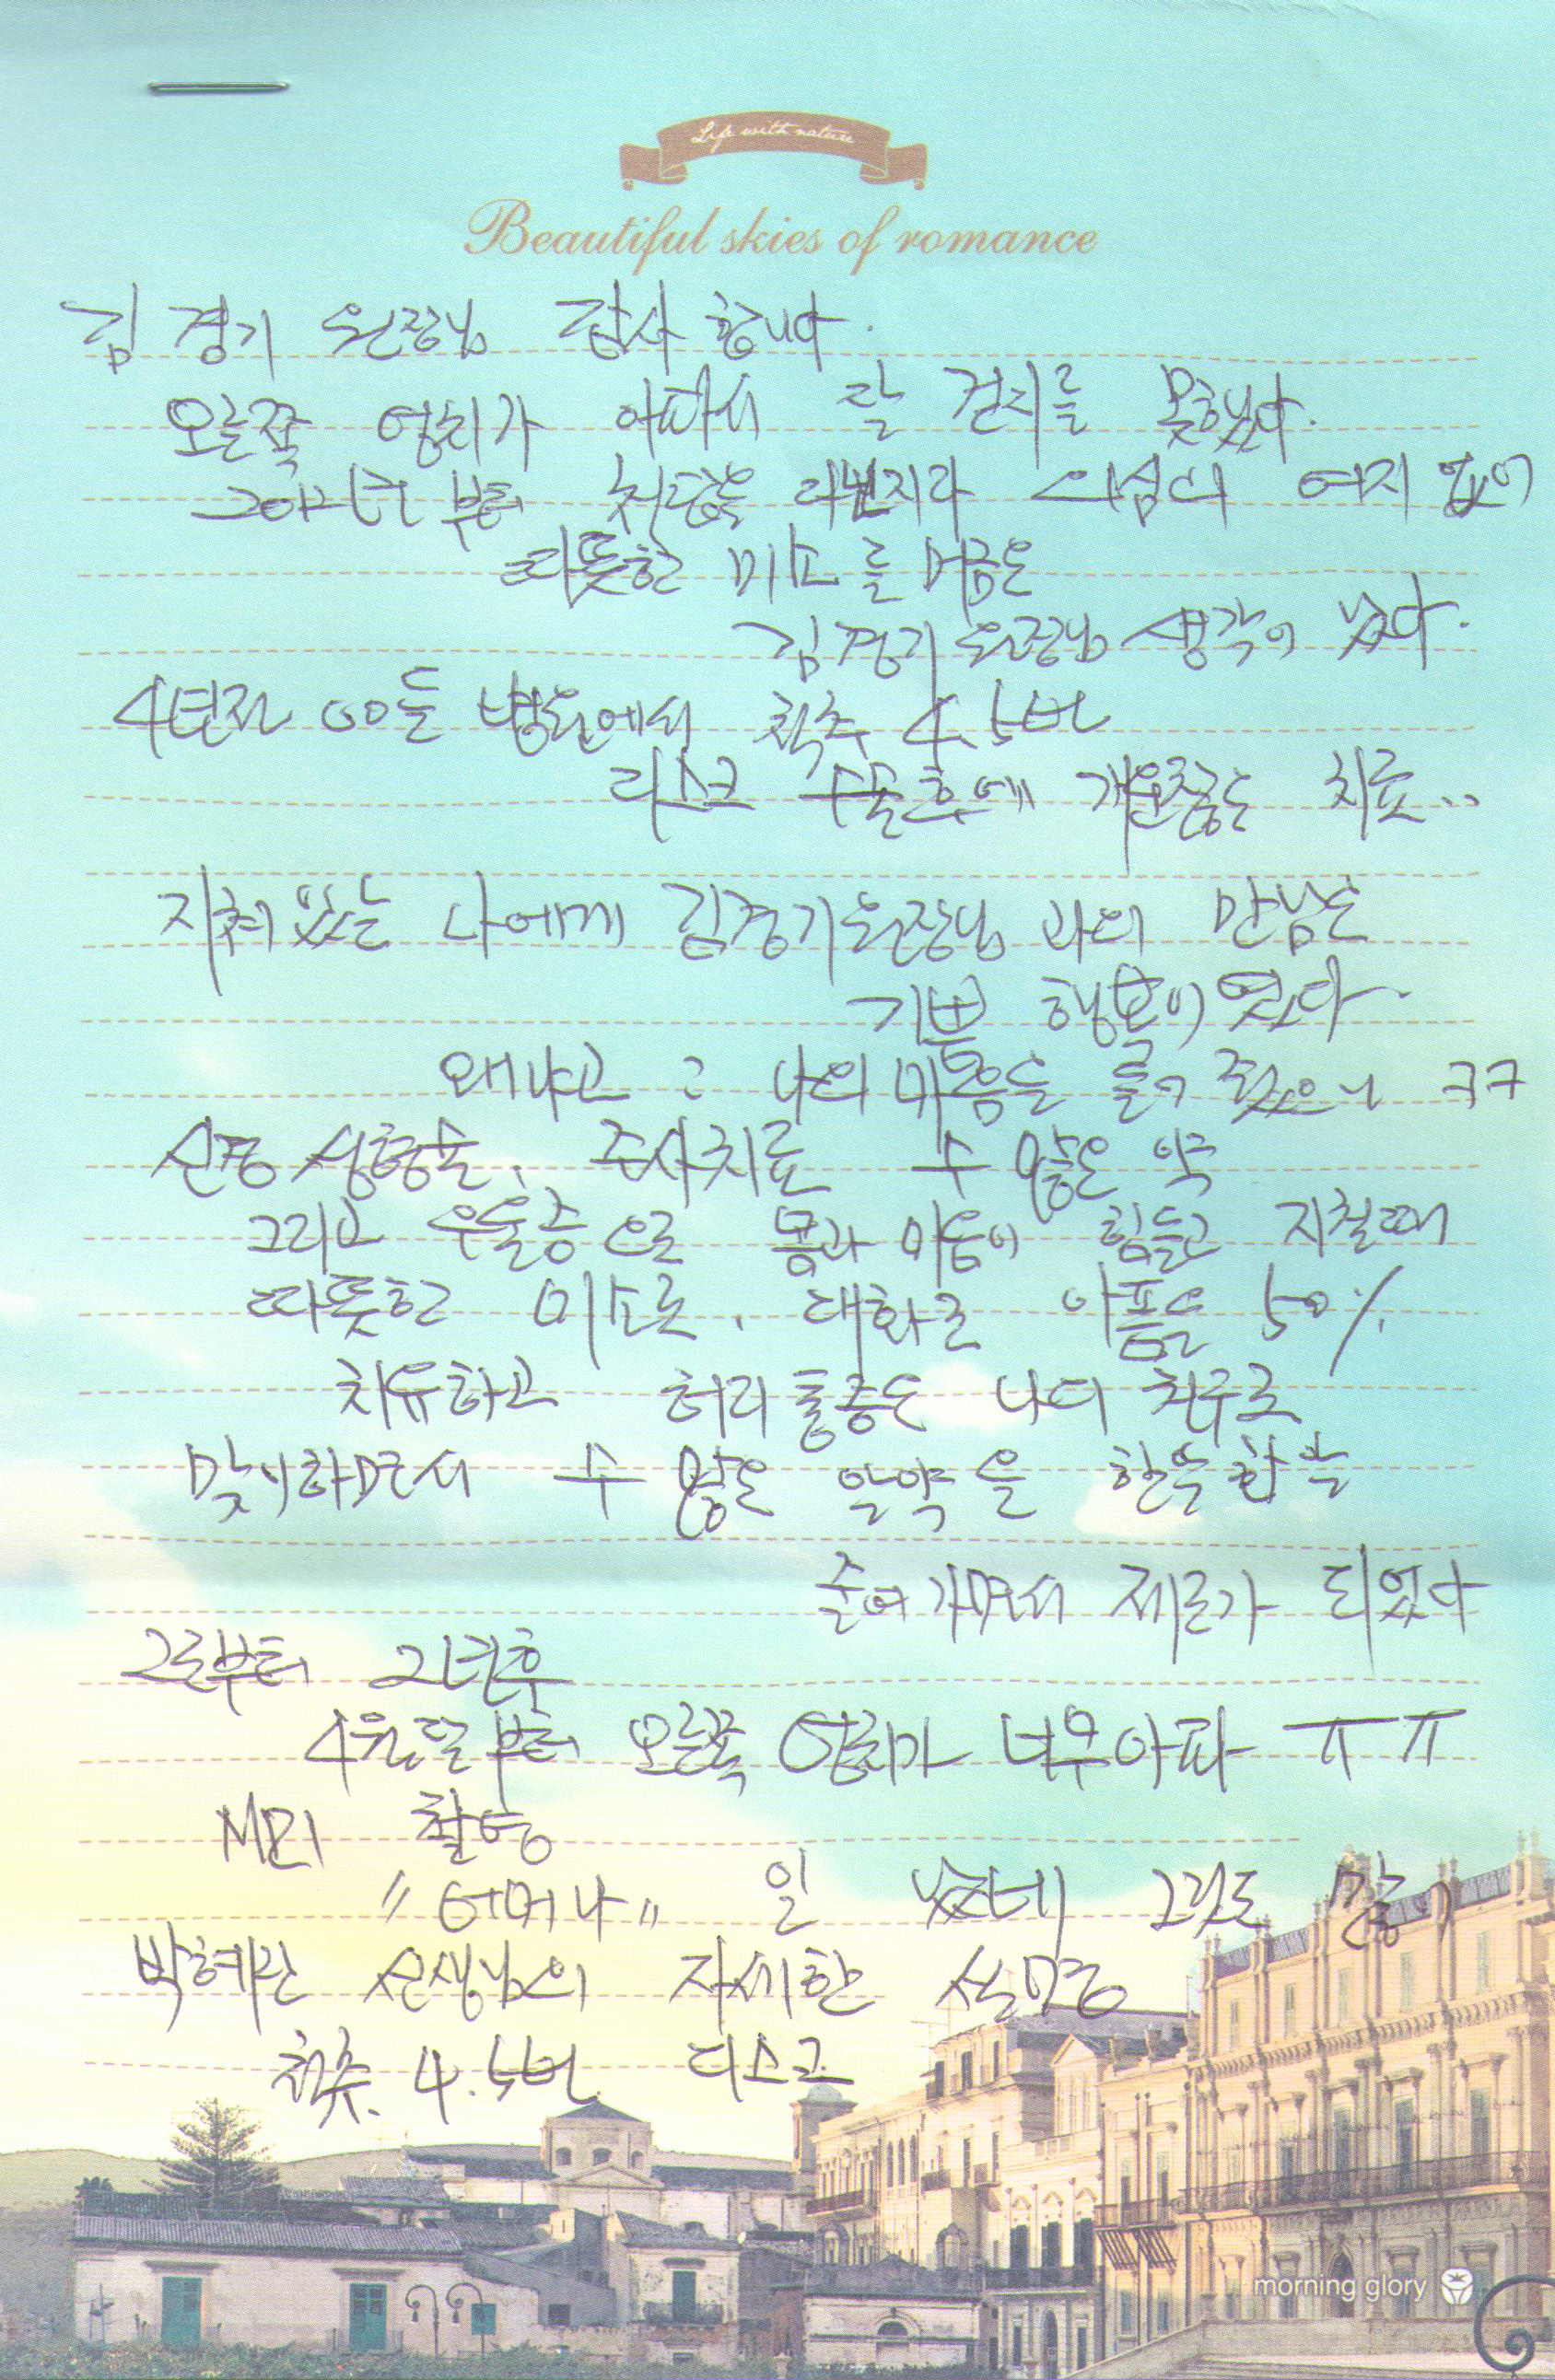 Life with nature
Beautiful skies of romance
김경기 원장님 감사합니다.
오른쪽 엉치가 아파서 잘 걷지를 못했다.
2012년부터 첫 다닌지라 의심의 여지 없이
따뜻한 미소를 머금은
김경기 원장님 생각이 났다.
4년전 00들 병원에서 척추 4, 5번
디스크 수술후에 개운찮은 치료..
지쳐있는 나에게 김경기 원장님과의 만남은
기쁨 행복이였다
왜냐고? 나의 마음을 풀어 줬으니 ㅋㅋ
신경성형술, 주사치료 수 많은 약
그리고 우울증으로 몸과 마음이 힘들고 지칠때
따뜻한 미소로, 대화로 아픔을 50%
치유하고 허리통증은 나의 친구로
맞이하면서 수 많은 알약을 한알한알
줄여가면서 제로가 되었다
그로부터 2년후
4월달부터 오른쪽 엉치가 너무 아파 ㅠㅠ
MRI 촬영
"어머나" 일 났네 그것도 많이
박혜란 선생님의 자세한 설명
척추. 4. 5번 디스크
morning glory